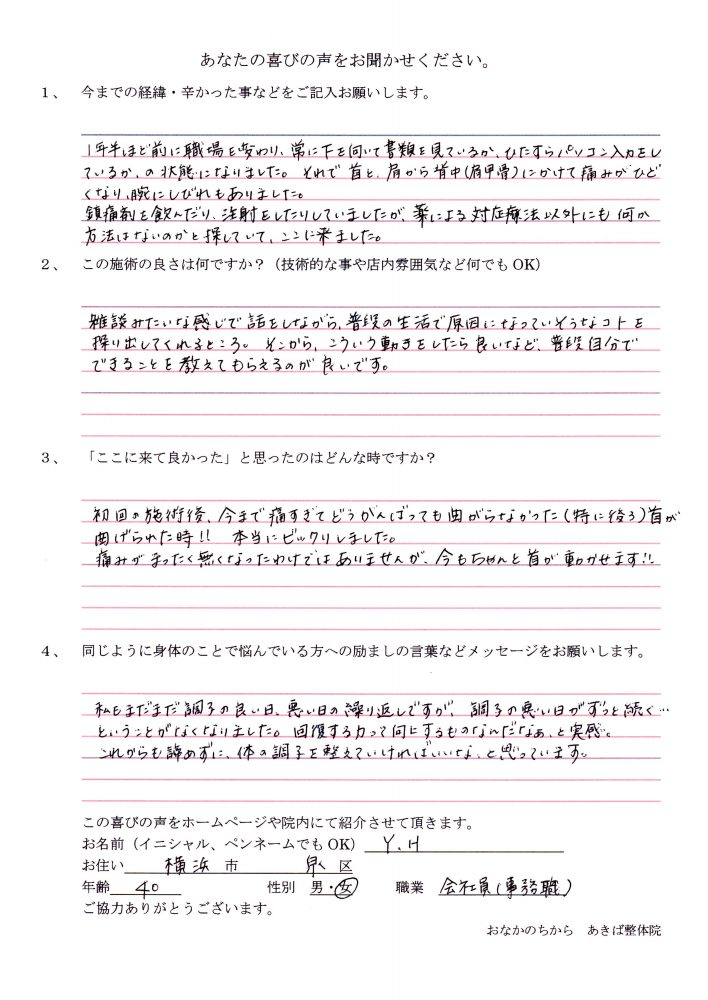 あなたの喜びの声をお聞かせください。
１、 今までの経緯・辛かった事などをご記入お願いします。
1年半ほど前に職場を変わり、常に下を向いて書類を見ているか、ひたすらパソコン入力をし
ているか、の状態になりました。それで首と、肩から背中(肩甲骨)にかけて痛みがひど
くなり、腕にしびれもありました。
鎮痛剤を飲んだり、注射をしたりしていましたが、薬による対症療法以外にも何か
方法はないのかと探していて、ここに来ました。
２、 この施術の良さは何ですか？（技術的な事や店内雰囲気など何でも OK）
雑談みたいな感じで話をしながら、普段の生活で原因になっていそうなコトを
探り出してくれるところ。そこから、こういう動きをしたら良いなど、普段自分で
できることを教えてもらえるのが良いです。
３、 「ここに来て良かった」と思ったのはどんな時ですか？
初回の施術後、今まで痛すぎてどうがんばっても曲がらなかった(特に後ろ)首が
曲げられた時!! 本当にビックリしました。
痛みがまったく無くなったわけではありませんが、今もちゃんと首が動かせます!!
４、 同じように身体のことで悩んでいる方への励ましの言葉などメッセージをお願いします。
私もまだまだ調子の良い日、悪い日の繰り返しですが、調子の悪い日がずっと続く…
ということがなくなりました。回復する力って何にするものなんだなぁ、と実感。
これからも諦めずに、体の調子を整えていければいいな、と思っています。
この喜びの声をホームページや院内にて紹介させて頂きます。
お名前（イニシャル、ペンネームでも OK） Y.H
お住い 横浜 市 区
年齢 40 性別 男・女 職業 会社員(事務職)
ご協力ありがとうございます。
おなかのちから あきば整体院